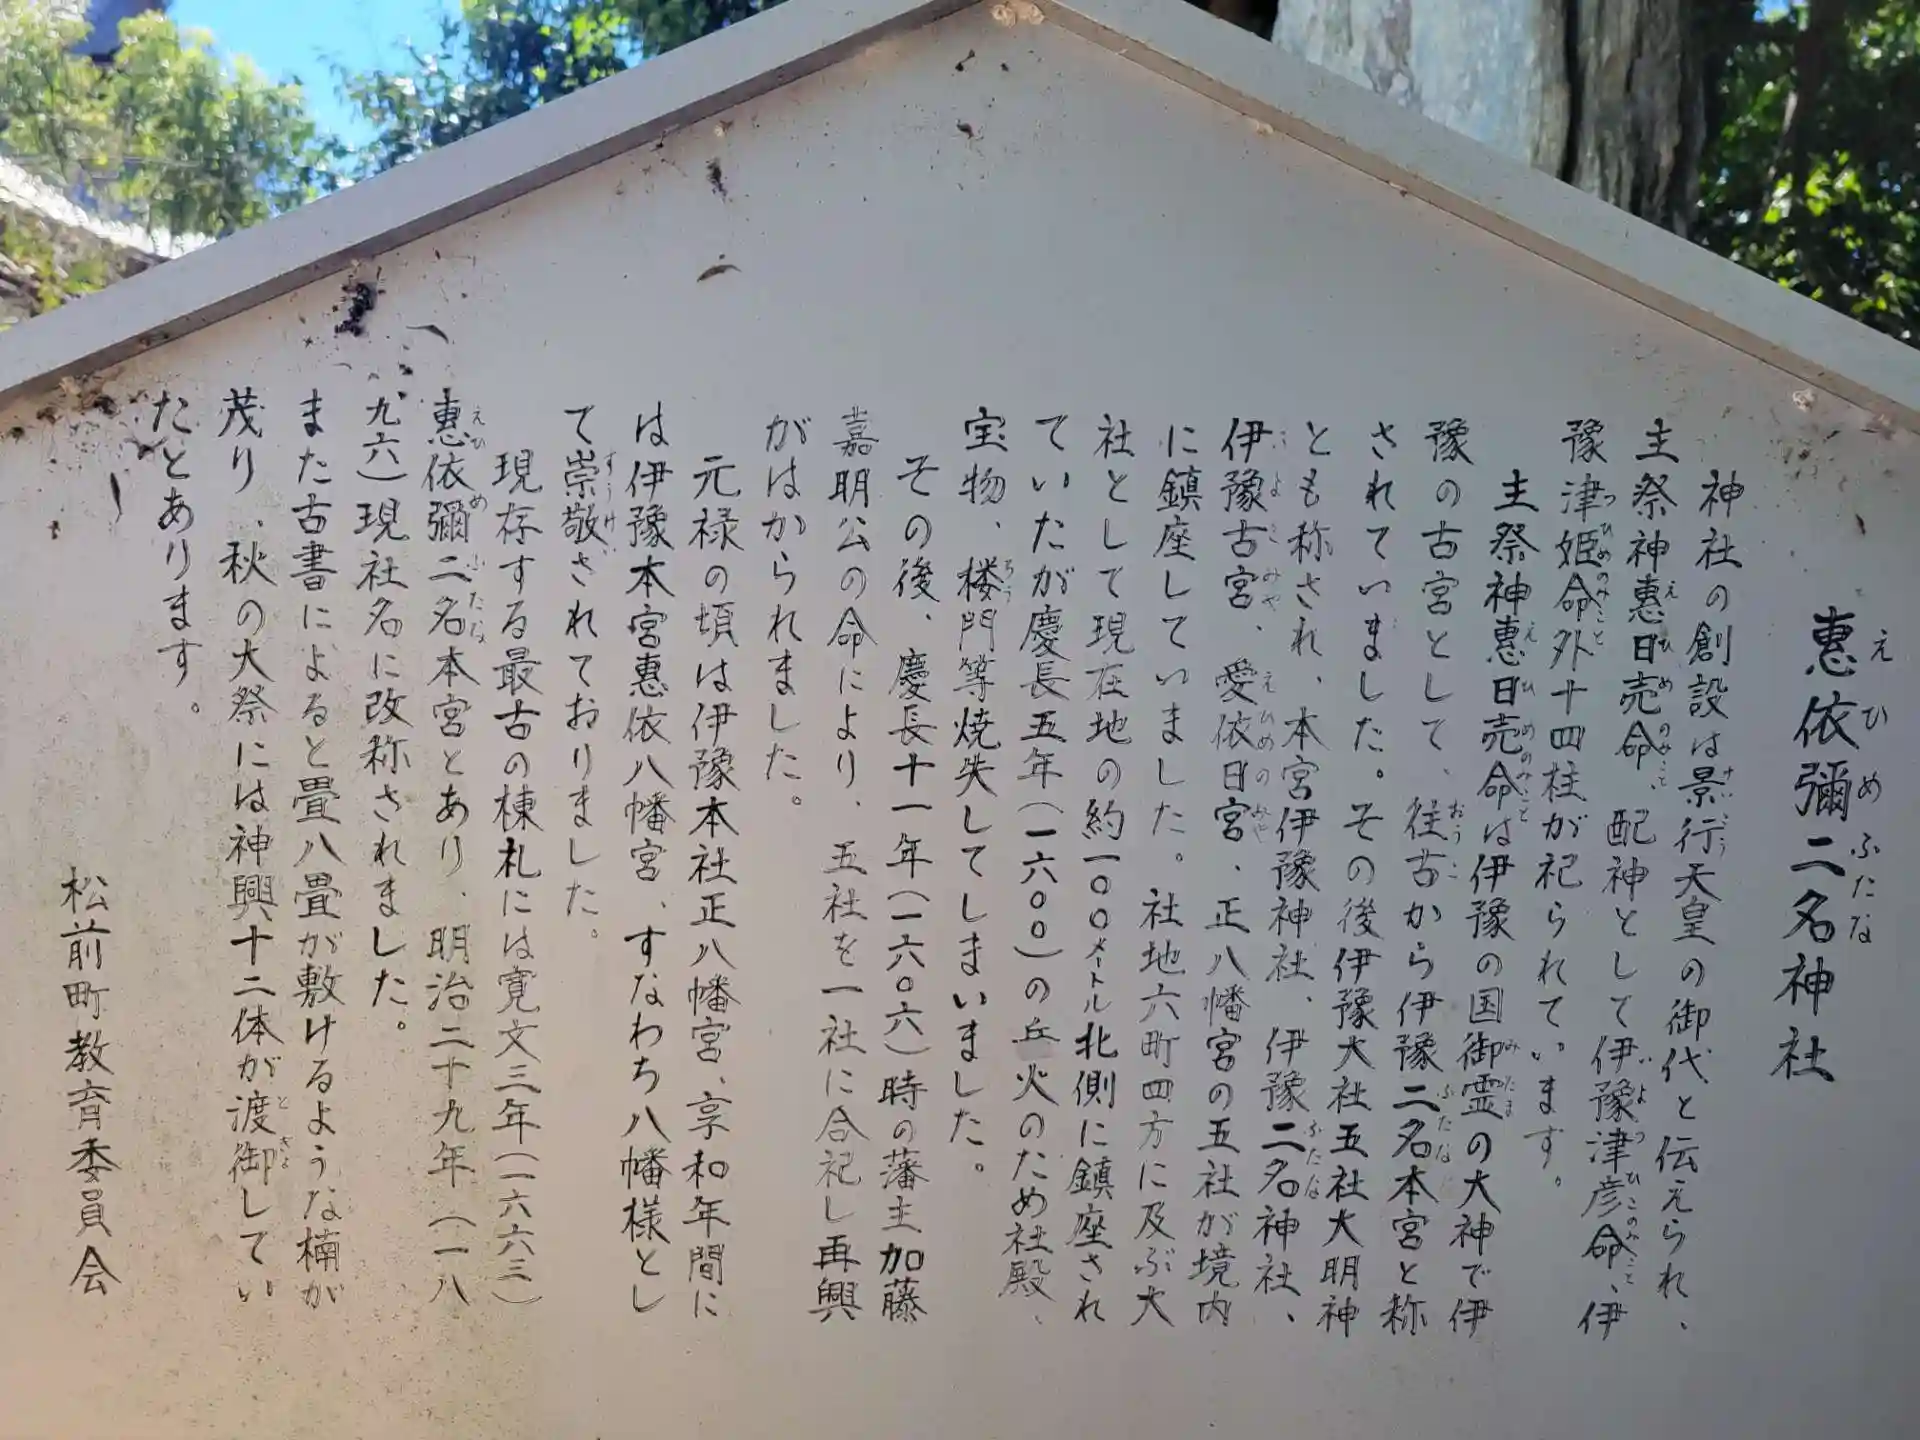 惠依彌二名神社
神社の創設は景行天皇の御代と伝えられ、
主祭神惠日売命、配神として伊豫津彦命、伊
豫津姫命外十四柱が祀られています。
主祭神惠日売命は伊豫の国御霊の大神で伊
豫の古宮として、往古から伊豫二名本宮と称
されていました。その後伊豫大社五社大明神
とも称され、本宮伊豫神社、伊豫二名神社、
伊豫古宮、愛依日宮、正八幡宮の五社が境内
に鎮座していました。社地六町四方に及ぶ大
社として現在地の約一〇〇メートル北側に鎮座され
ていたが慶長五年(一六〇〇)の兵火のため社殿、
宝物、楼門等焼失してしまいました。
その後、慶長十一年(一六〇六)時の藩主加藤
嘉明公の命により、五社を一社に合祀し再興
がはかられました。
元禄の頃は伊豫本社正八幡宮、享和年間に
は伊豫本宮惠依八幡宮、すなわち八幡様とし
て崇敬されておりました。
現存する最古の棟札には寛文三年(一六六三)
惠依彌二名本宮とあり、明治二十九年(一八
九六)現社名に改称されました。
また古書によると畳八畳が敷けるような楠が
茂り、秋の大祭には神興十二体が渡御してい
たとあります。
松前町教育委員会